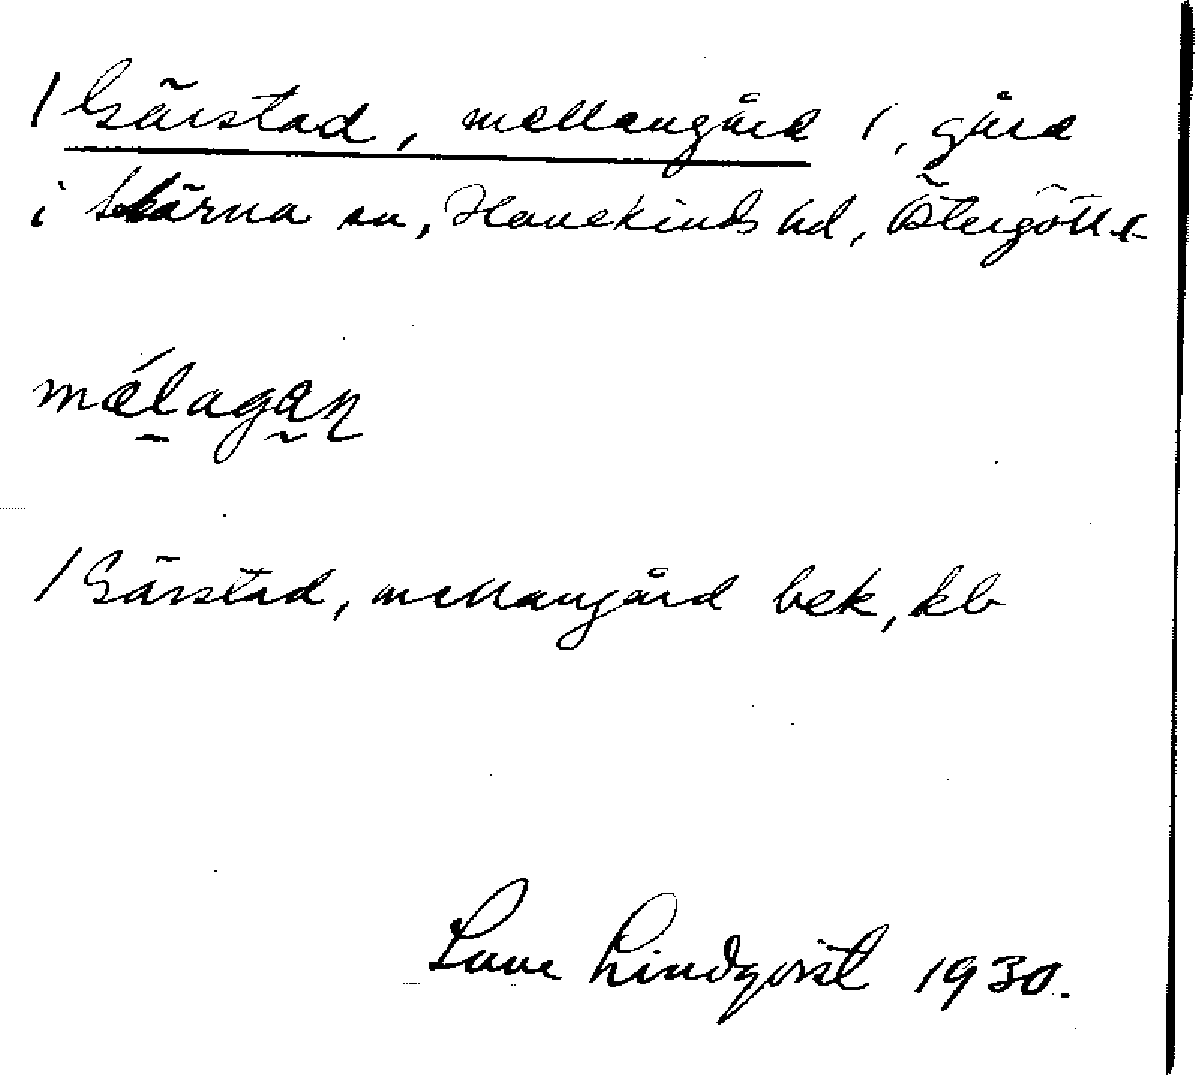 / Gärstad, mellangård /, gård
i Skärna sn, Hanekinds hd, Östergötl-
mélagan
/ Gärstad, mellangård bek, kb
Sune Lindqvist 1930.